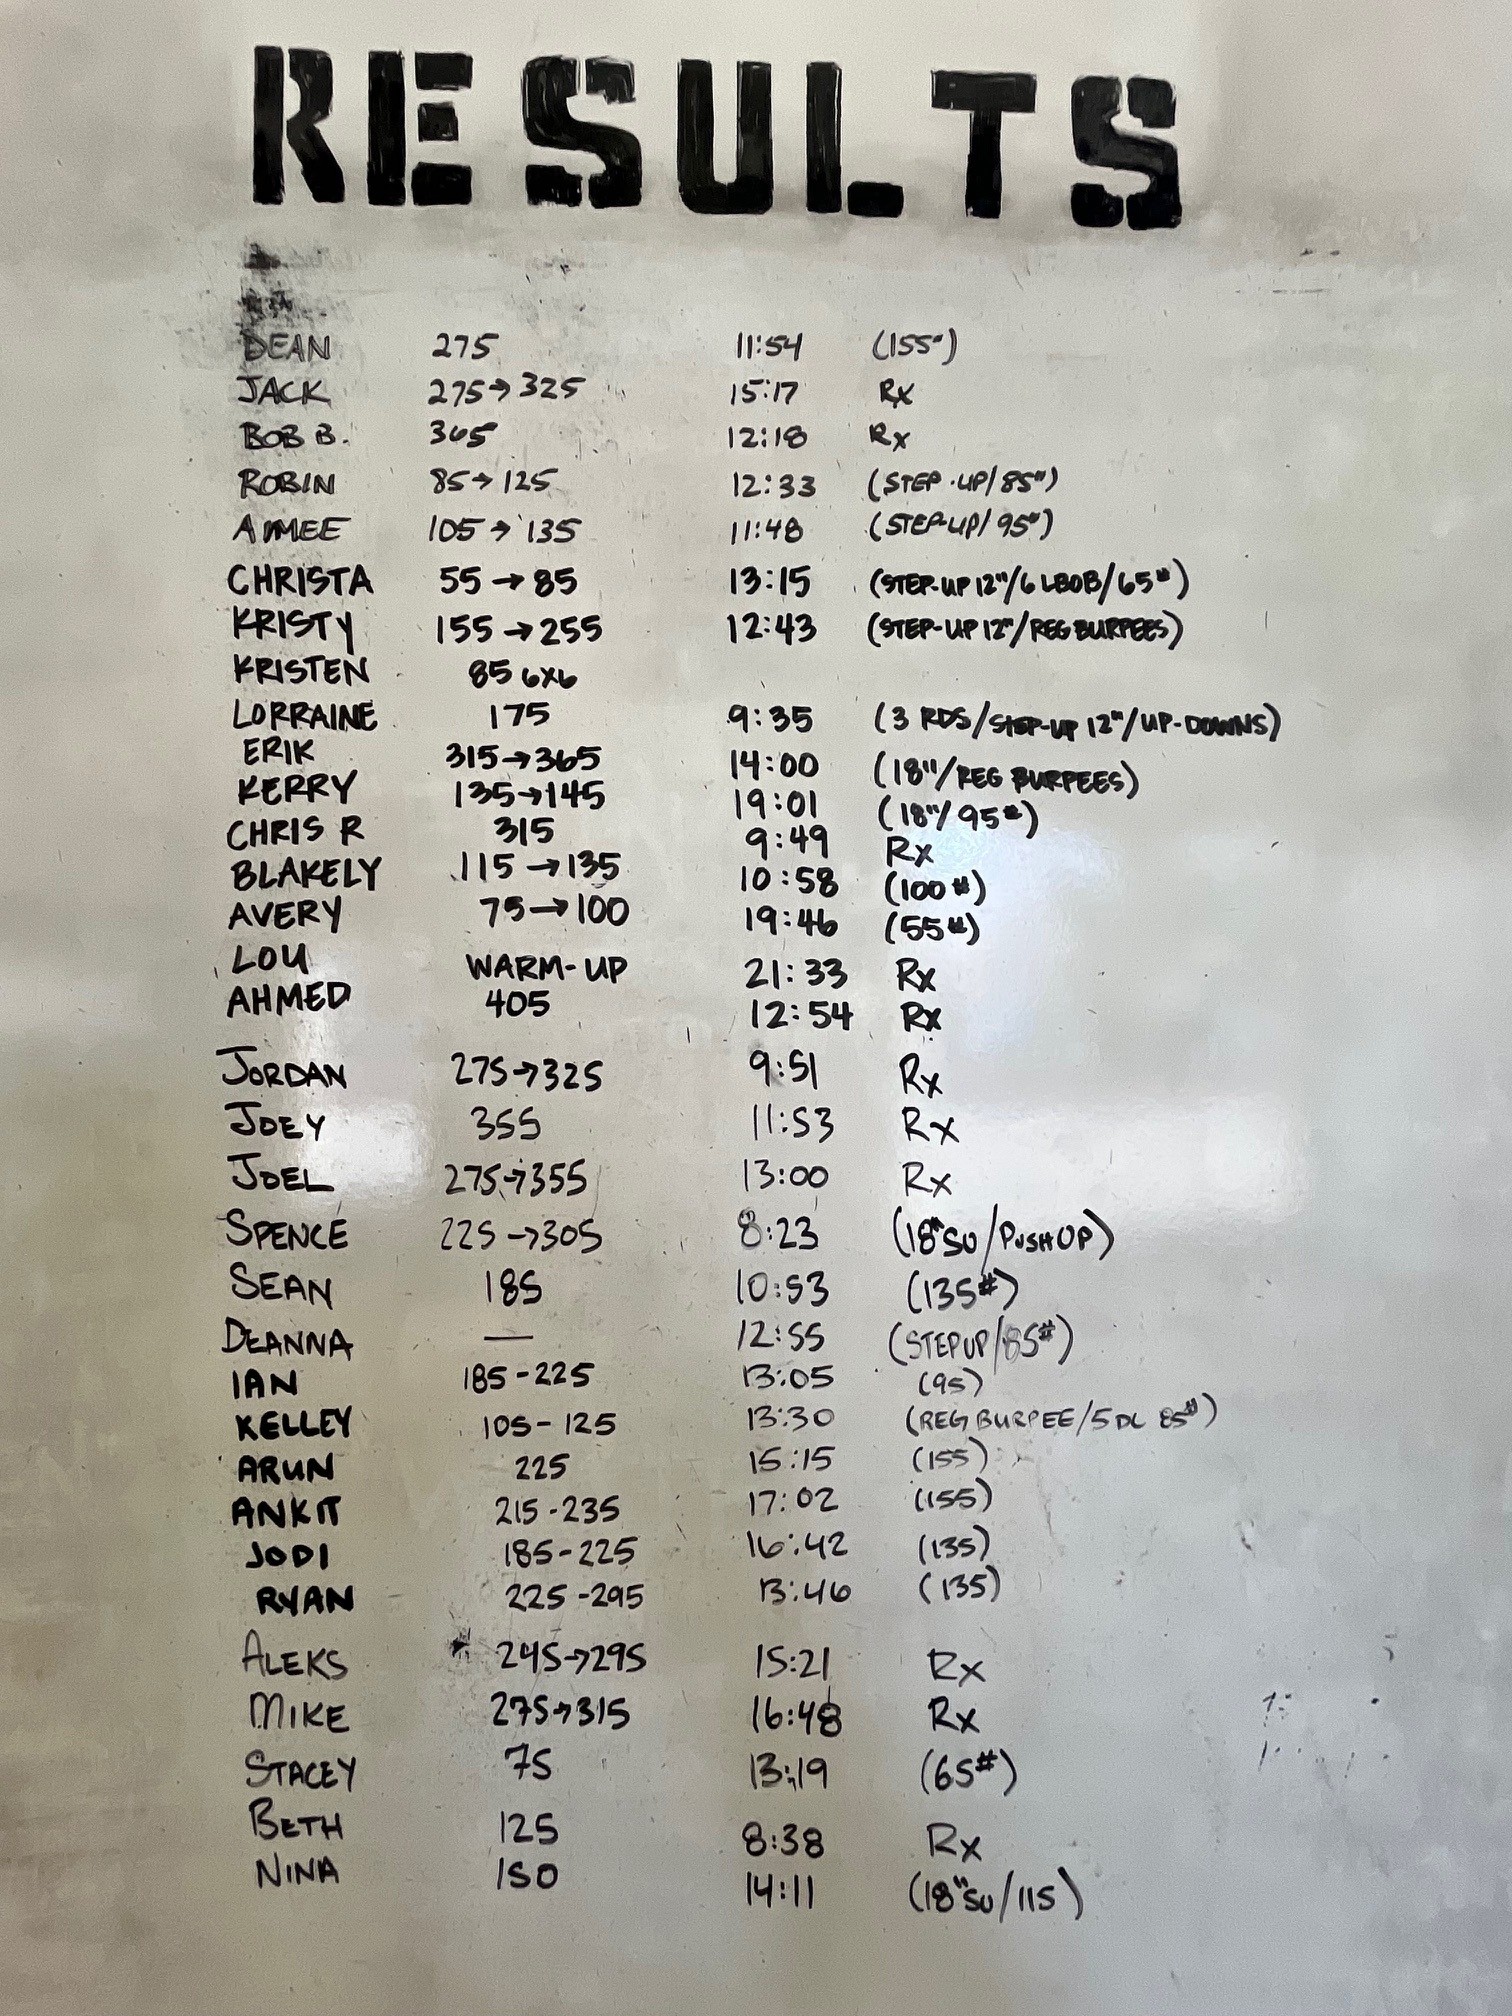 RESULTS
DEAN 275 11:54 (155#)
JACK 275→325 15:17 Rx
BOB B. 365 12:18 Rx
ROBIN 85→125 12:33 (STEP-UP/85#)
AIMEE 105→135 11:48 (STEP-UP/95#)
CHRISTA 55→85 13:15 (STEP-UP 12"/6 LBOB/65#)
KRISTY 155→255 12:43 (STEP-UP 12"/REG BURPEES)
KRISTEN 85 6x6
LORRAINE 175 9:35 (3 RDS/STEP-UP 12"/UP-DOWNS)
ERIK 315→365 14:00 (18"/REG BURPEES)
KERRY 135→145 19:01 (18"/95#)
CHRIS R 315 9:49 Rx
BLAKELY 115→135 10:58 (100#)
AVERY 75→100 19:46 (55#)
LOU WARM-UP 21:33 Rx
AHMED 405 12:54 Rx
JORDAN 275→325 9:51 Rx
JOEY 355 11:53 Rx
JOEL 275→355 13:00 Rx
SPENCE 225→305 8:23 (18"SU/PUSHUP)
SEAN 185 10:53 (135#)
DEANNA — 12:55 (STEPUP/85#)
IAN 185-225 13:05 (95)
KELLEY 105-125 13:30 (REG BURPEE/5 DL 85#)
ARUN 225 15:15 (155)
ANKIT 215-235 17:02 (155)
JODI 185-225 16:42 (135)
RYAN 225-295 13:46 (135)
ALEKS 245→295 15:21 Rx
MIKE 275→315 16:48 Rx
STACEY 75 13:19 (65#)
BETH 125 8:38 Rx
NINA 150 14:11 (18"SU/115)